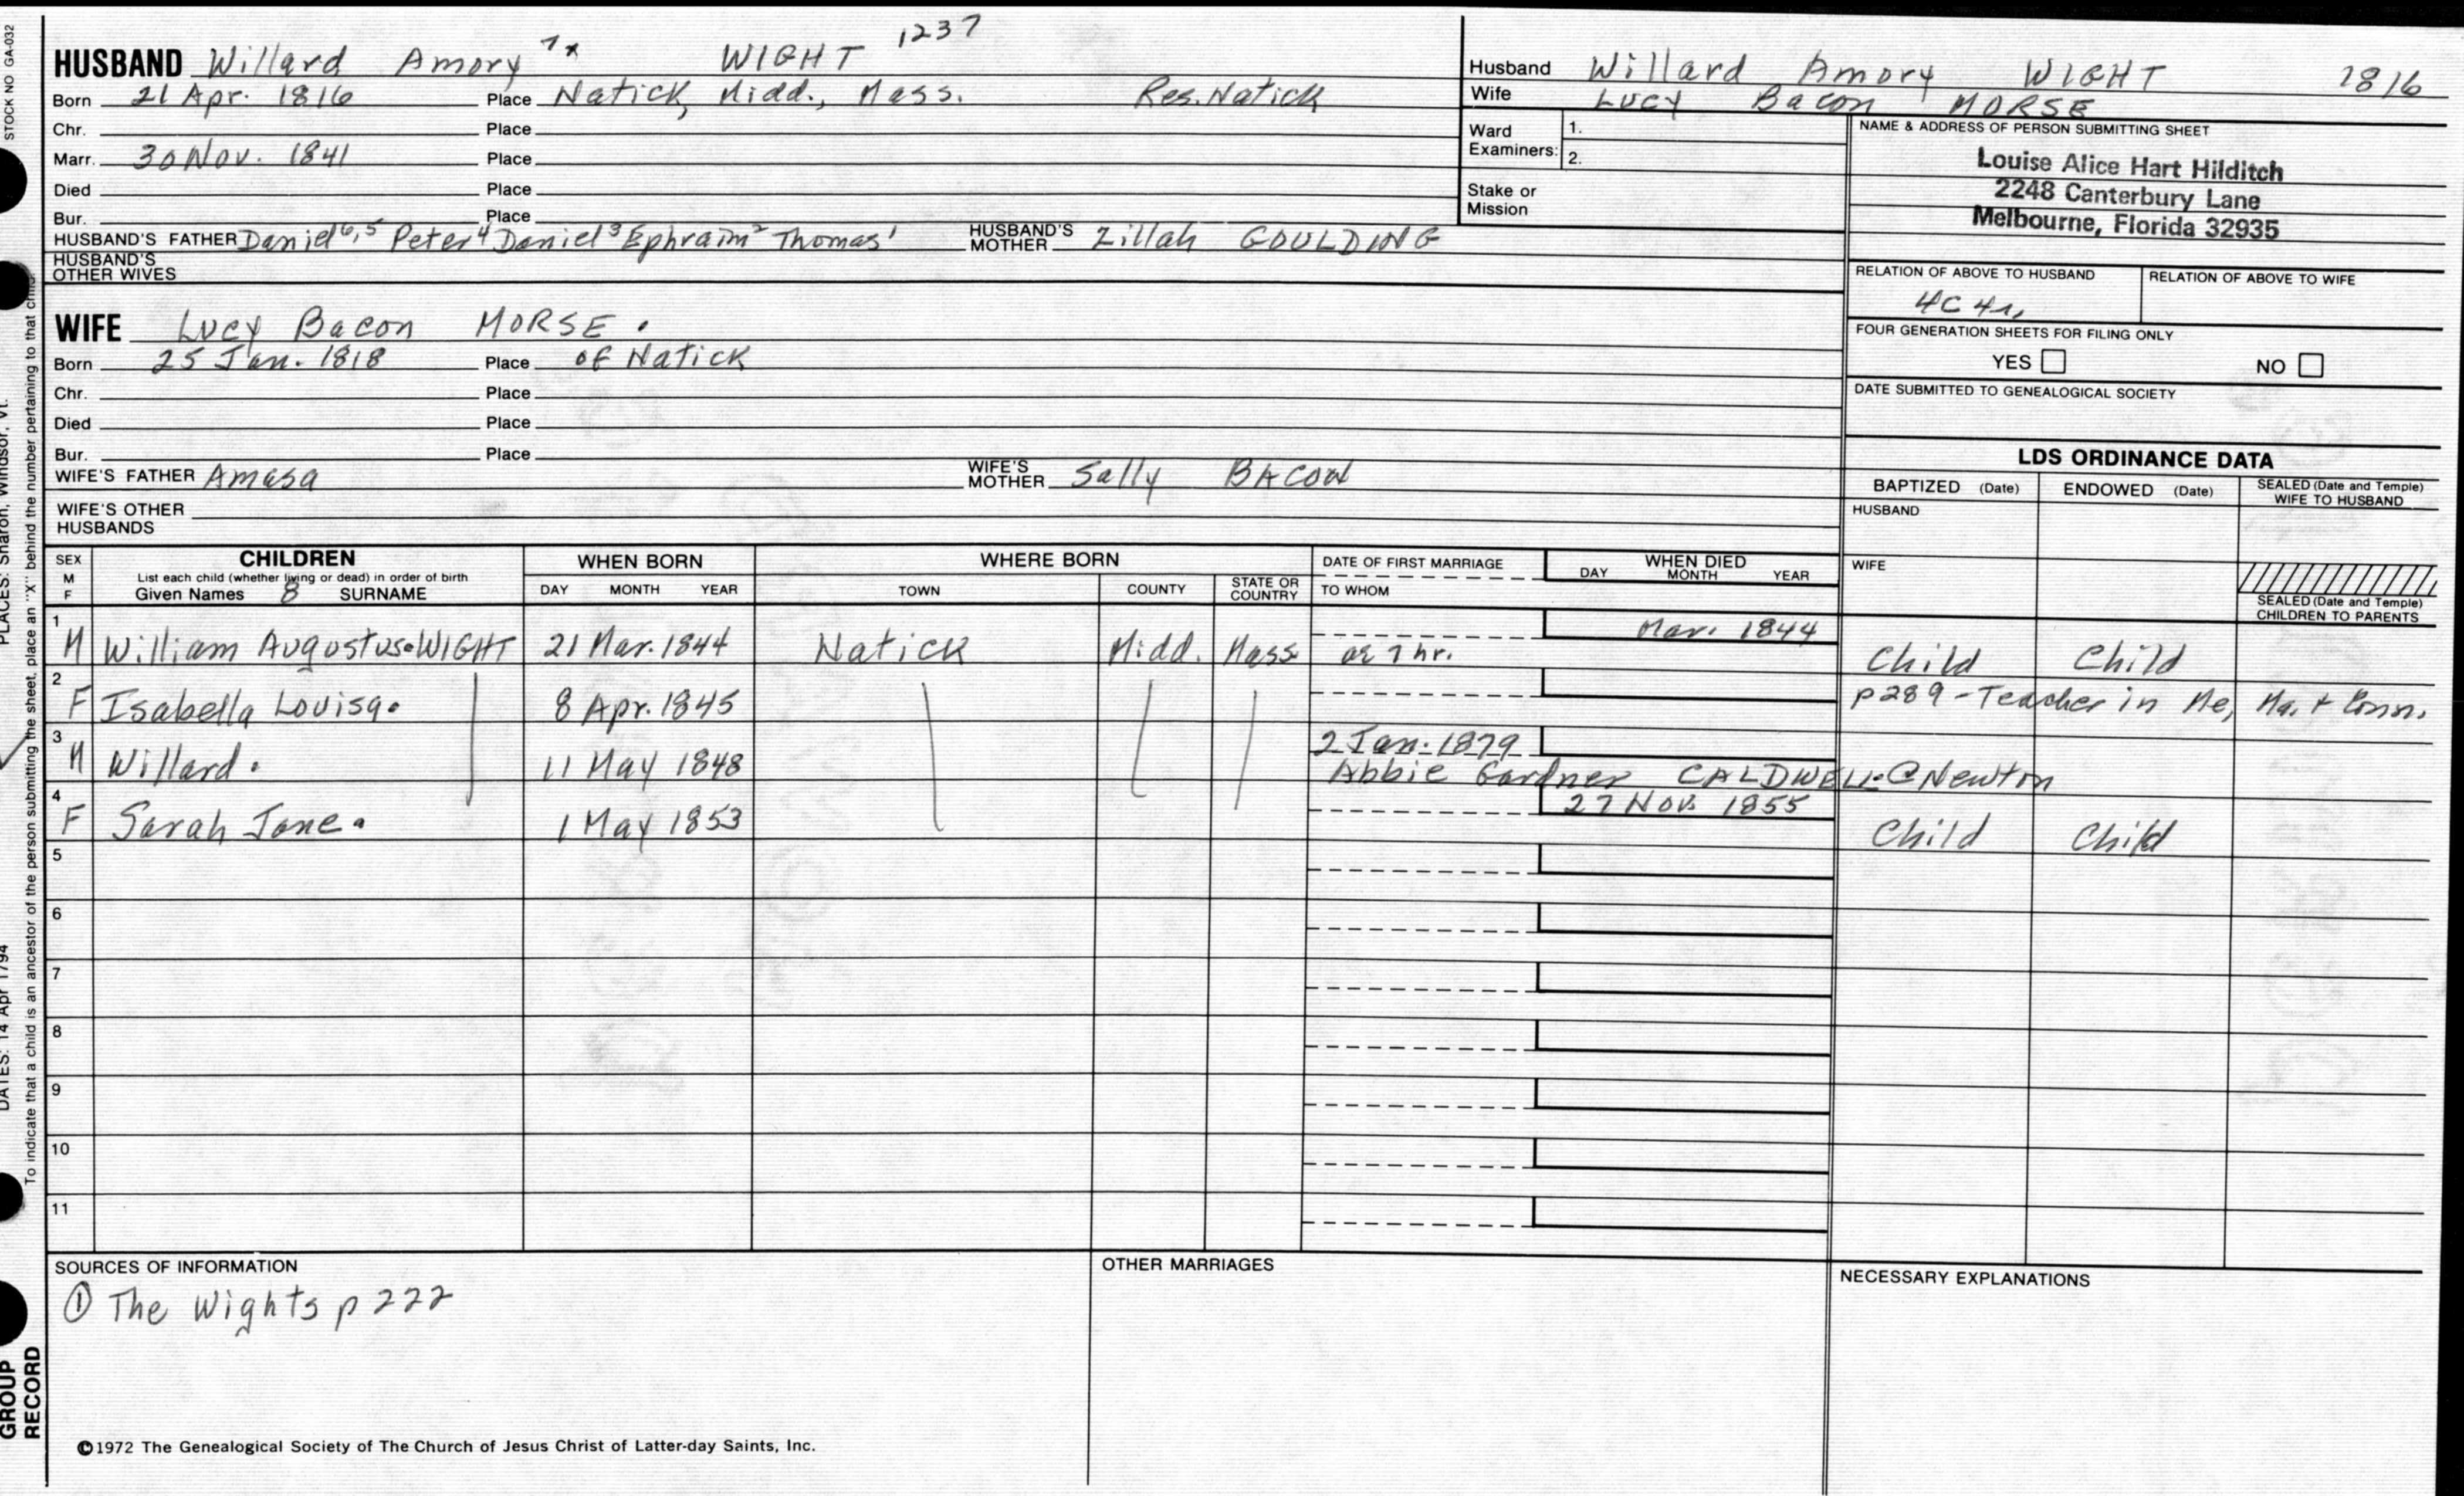 HUSBAND Willard Amory 7x WIGHT 1237
Born 21 Apr. 1816 Place Natick, Midd., Mass. Res. Natick
Chr. Place
Marr. 30 Nov. 1841 Place
Died Place
Bur. Place
HUSBAND'S FATHER Daniel 6,5 Peter 4 Daniel 3 Ephraim 2 Thomas 1 HUSBAND'S MOTHER Zillah GOULDING
HUSBAND'S OTHER WIVES
WIFE Lucy Bacon MORSE.
Born 25 Jan. 1818 Place of Natick
Chr. Place
Died Place
Bur. Place
WIFE'S FATHER Amasa WIFE'S MOTHER Sally BACON
WIFE'S OTHER HUSBANDS
Husband Willard Amory WIGHT 1816
Wife Lucy Bacon MORSE
Ward Examiners: 1.
2.
Stake or Mission
NAME & ADDRESS OF PERSON SUBMITTING SHEET
Louise Alice Hart Hilditch
2248 Canterbury Lane
Melbourne, Florida 32935
RELATION OF ABOVE TO HUSBAND RELATION OF ABOVE TO WIFE
4C 4r,
FOUR GENERATION SHEETS FOR FILING ONLY
YES NO
DATE SUBMITTED TO GENEALOGICAL SOCIETY
LDS ORDINANCE DATA
BAPTIZED (Date) ENDOWED (Date) SEALED (Date and Temple) WIFE TO HUSBAND
HUSBAND
WIFE
SEALED (Date and Temple) CHILDREN TO PARENTS
SEX M F CHILDREN WHEN BORN WHERE BORN DATE OF FIRST MARRIAGE WHEN DIED
List each child (whether living or dead) in order of birth
Given Names 8 SURNAME DAY MONTH YEAR TOWN COUNTY STATE OR COUNTRY TO WHOM DAY MONTH YEAR
1 M William Augustus. WIGHT 21 Mar. 1844 Natick Midd. Mass ae 7 hr. Mar. 1844 Child Child
2 F Isabella Louisa. 8 Apr. 1845 p289 - Teacher in Me, Ma, + Conn.
3 M Willard. 11 May 1848 2 Jan. 1879
Abbie Gardner CALDWELL. @ Newton
4 F Sarah Jane. 1 May 1853 27 Nov. 1855 Child Child
5
6
7
8
9
10
11
SOURCES OF INFORMATION OTHER MARRIAGES NECESSARY EXPLANATIONS
① The Wights p 222
©1972 The Genealogical Society of The Church of Jesus Christ of Latter-day Saints, Inc.
STOCK NO GA-032
PLACES: Sharon, Windsor, Vt.
DATES: 14 Apr 1794
To indicate that a child is an ancestor of the person submitting the sheet, place an "X" behind the number pertaining to that child.
GROUP
RECORD